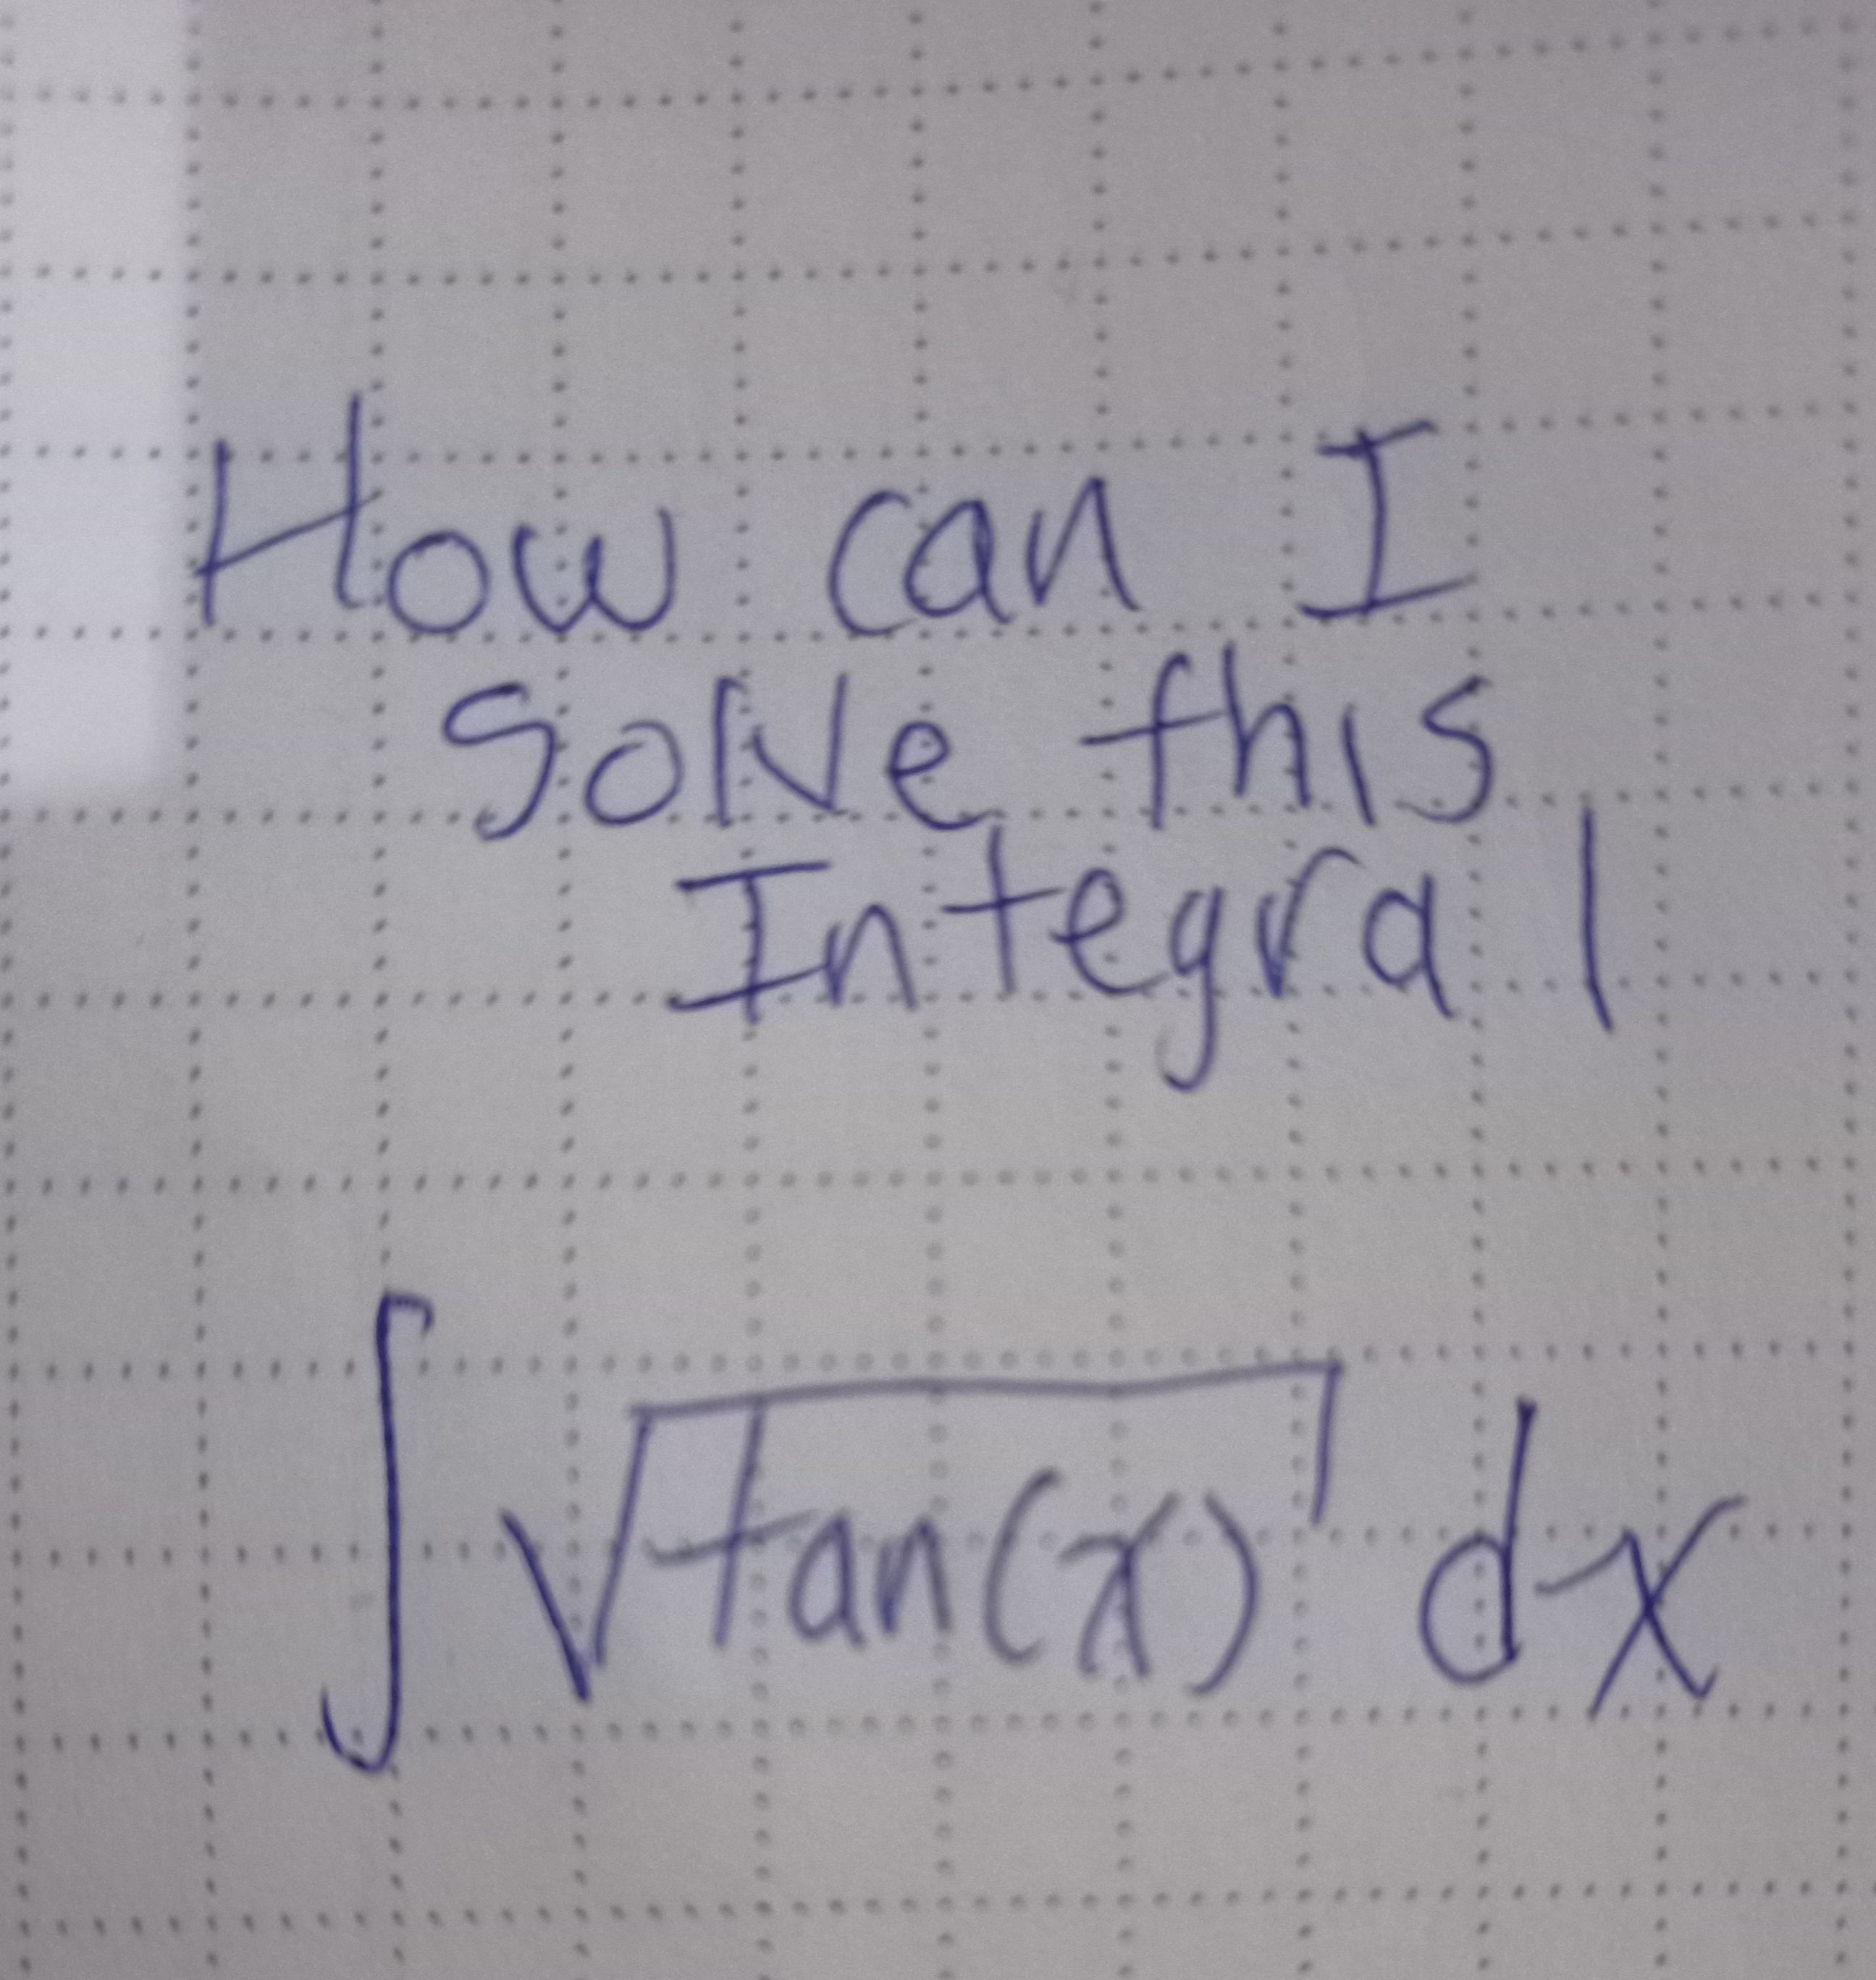 How can I
Solve this
Integral
∫ √tan(x) dx